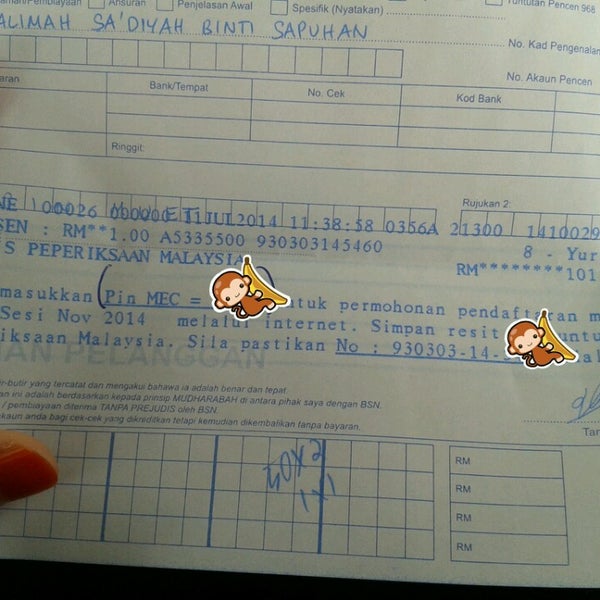 Ansuran
Penjelasan Awal
Spesifik (Nyatakan)
Tuntutan Pencen 968
ALIMAH SA'DIYAH BINTI SAPUHAN
No. Kad Pengenala
No. Akaun Pencen
Bank/Tempat
No. Cek
Kod Bank
Ringgit:
Rujukan 2:
100026 000000 ET1JUL2014 11:38:58 0356A 21300 1410029
SEN : RM**1.00 A5335500 930303145460 8 - Yur
S PEPERIKSAAN MALAYSIA RM********101
masukkan (Pin MEC = ) tuk permohonan pendaftaran m
Sesi Nov 2014 melalui internet. Simpan resit untu
iksaan Malaysia. Sila pastikan No : 930303-14-
AN PELANGGAN
ir-butir yang tercatat dan mengakui bahawa ia adalah benar dan tepat.
an ini adalah berdasarkan kepada prinsip MUDHARABAH di antara pihak saya dengan BSN.
/ pembayaan diterima TANPA PREJUDIS oleh BSN.
kaun anda bagi cek-cek yang dikreditkan tetapi kemudian dikembalikan tanpa bayaran.
Tan
RM
RM
RM
RM